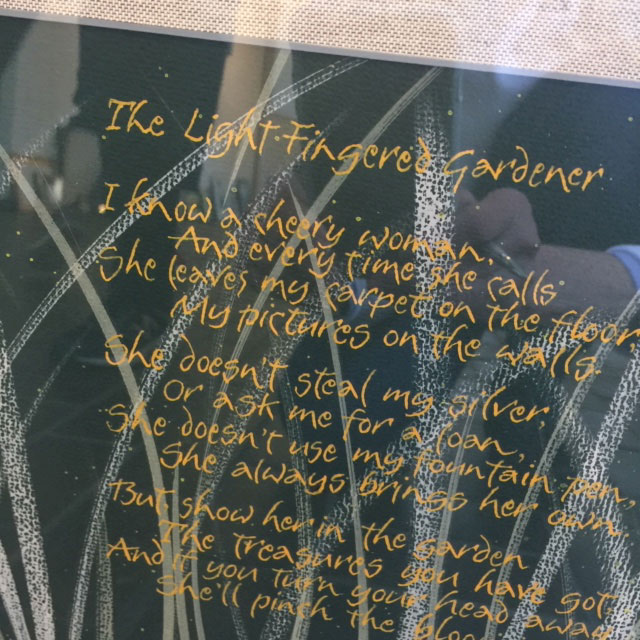 The Light-Fingered Gardener
I know a cheery woman,
And every time she calls
She leaves my carpet on the floor
My pictures on the walls.
She doesn't steal my silver,
Or ask me for a loan,
She doesn't use my fountain pen,
She always brings her own.
But show her in the garden
The treasures you have got
And if you turn your head away
She'll pinch the